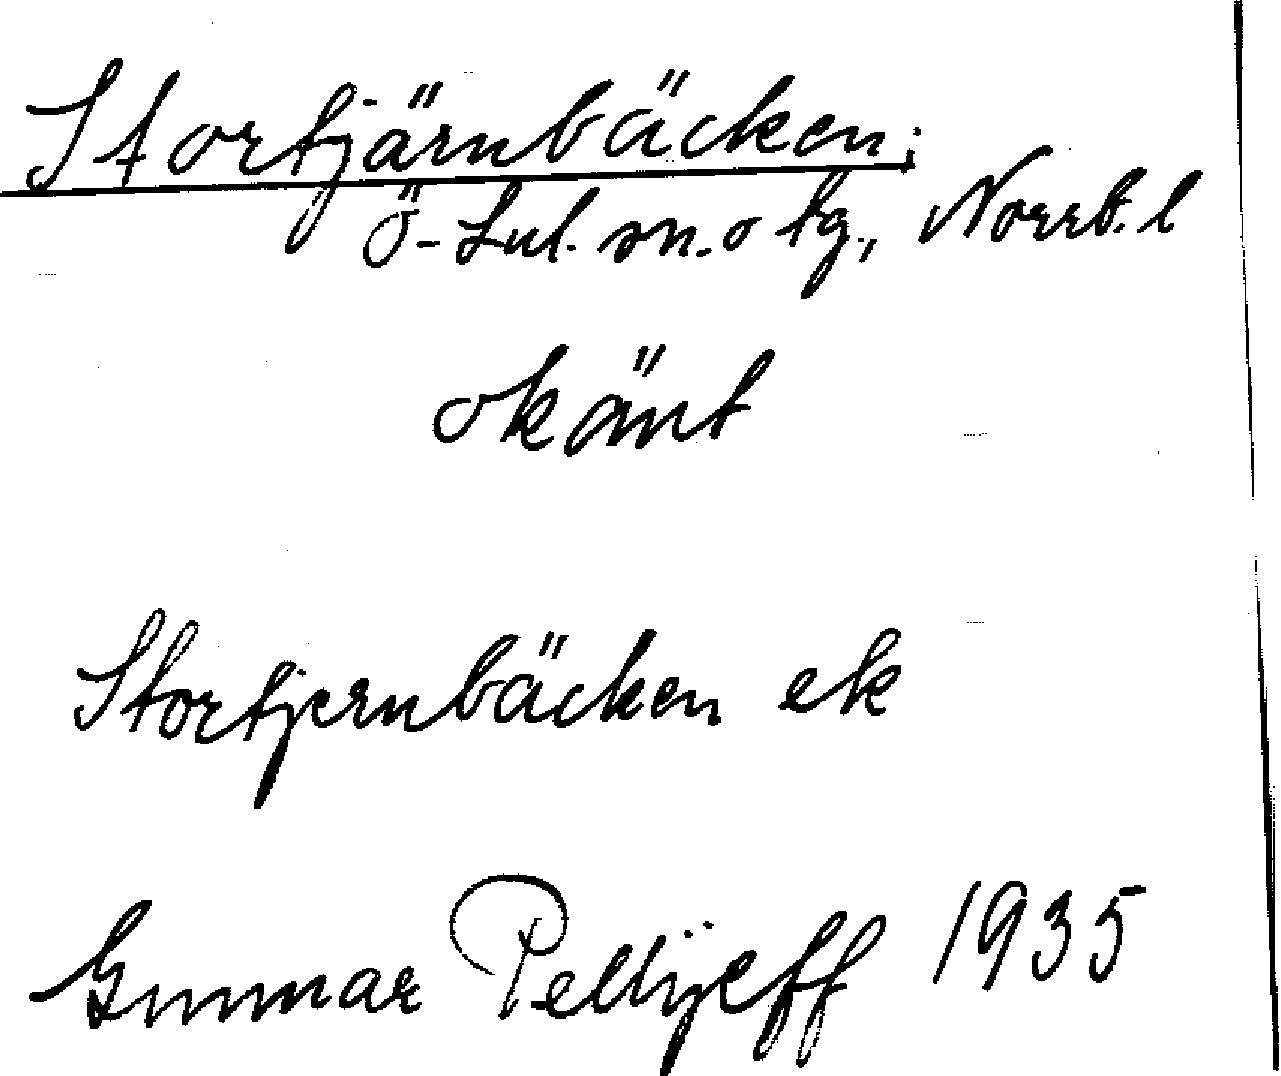 Stortjärnbäcken;
Ö-Lul. sn. o tg., Norrb. l
okänt
Stortjernbäcken ek
Gunnar Pellijeff 1935